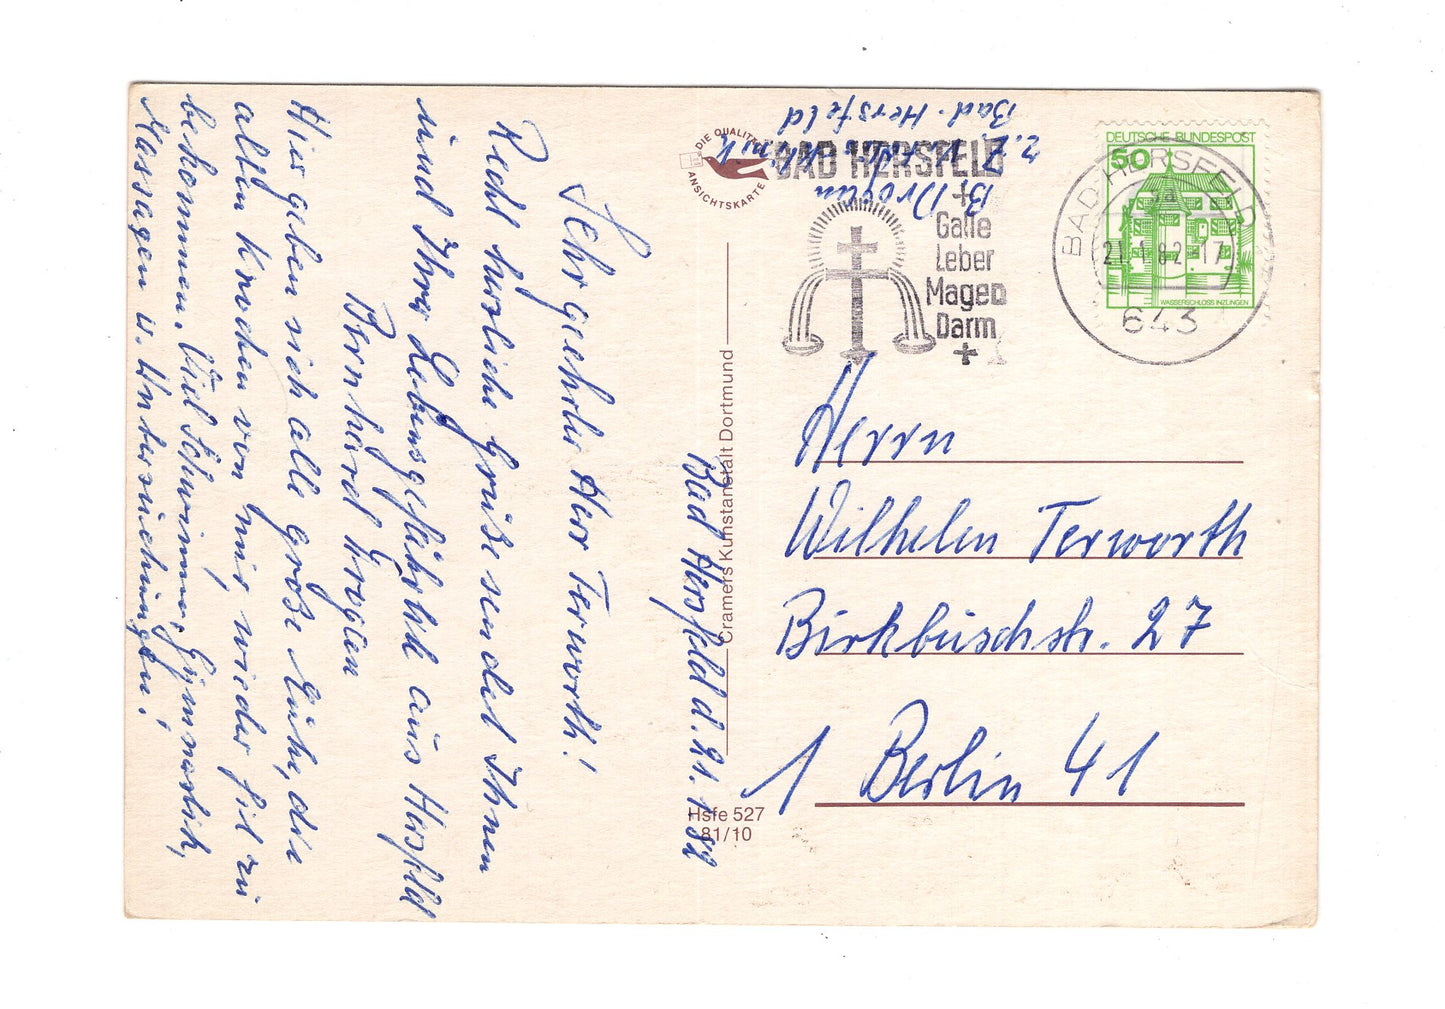 Bad Hersfeld d. 21.1.82
Sehr geehrter Herr Terworth!
Recht herzliche Grüße sendet Ihnen
und Ihrer Lebensgefährtin aus Hersfeld
Bernhard
Hier geben sich alle große Mühe, die
alten Knochen von mir, wieder fit zu
bekommen. Viel Schwimmen, Gymnastik,
Massagen u. Untersuchungen!
B.
z. Z.
Bad-Hersfeld
DIE QUALITÄTS
ANSICHTSKARTE
BAD HERSFELD
Galle
Leber
Magen
Darm
DEUTSCHE BUNDESPOST
50
WASSERSCHLOSS INZLINGEN
BAD HERSFELD
21.-1.82-17
643
Cramers Kunstanstalt Dortmund
Hsfe 527
81/10
Herrn
Wilhelm Terworth
Birkbuschstr. 27
1 Berlin 41